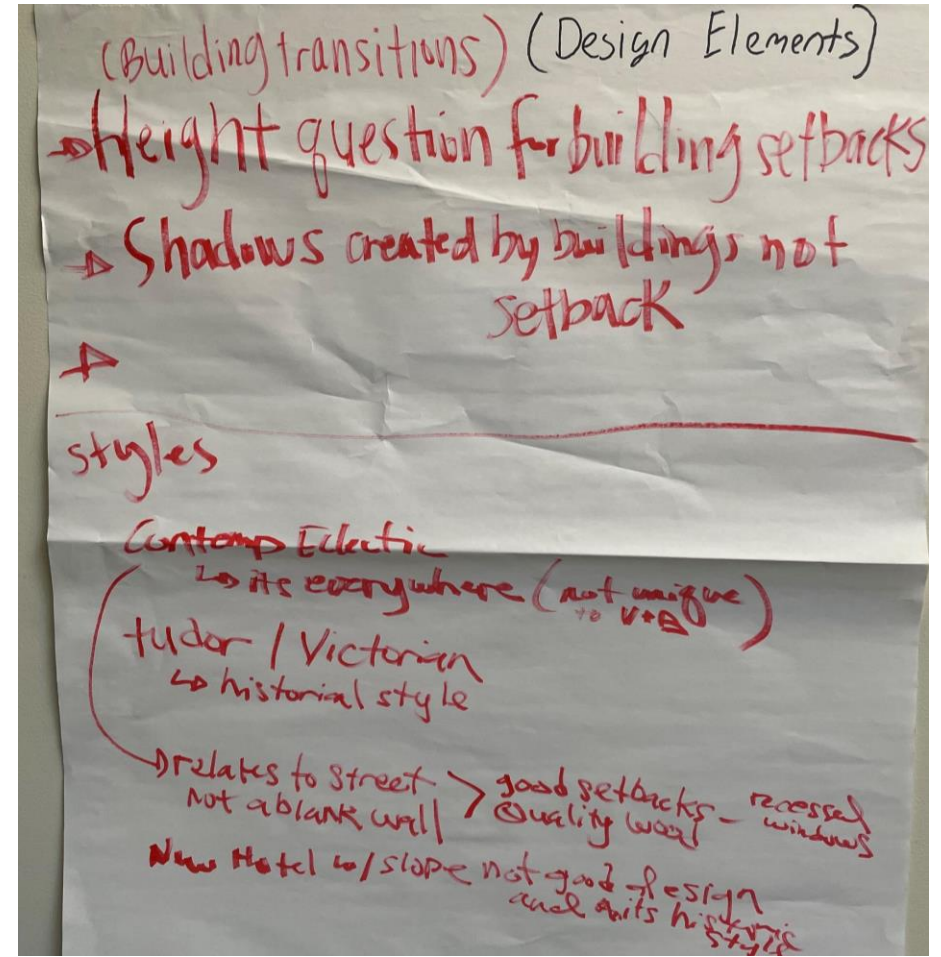 (Building transitions) (Design Elements)
→Height question for building setbacks
→ Shadows created by buildings not
setback
→
styles
Contemp Eclectic
↳ its everywhere (not unique
to V+A)
tudor / Victorian
↳ historial style
→ relates to street > good setbacks - recessed
not a blank wall Quality wood windows
New Hotel w/ slope not good design
and its historic
style